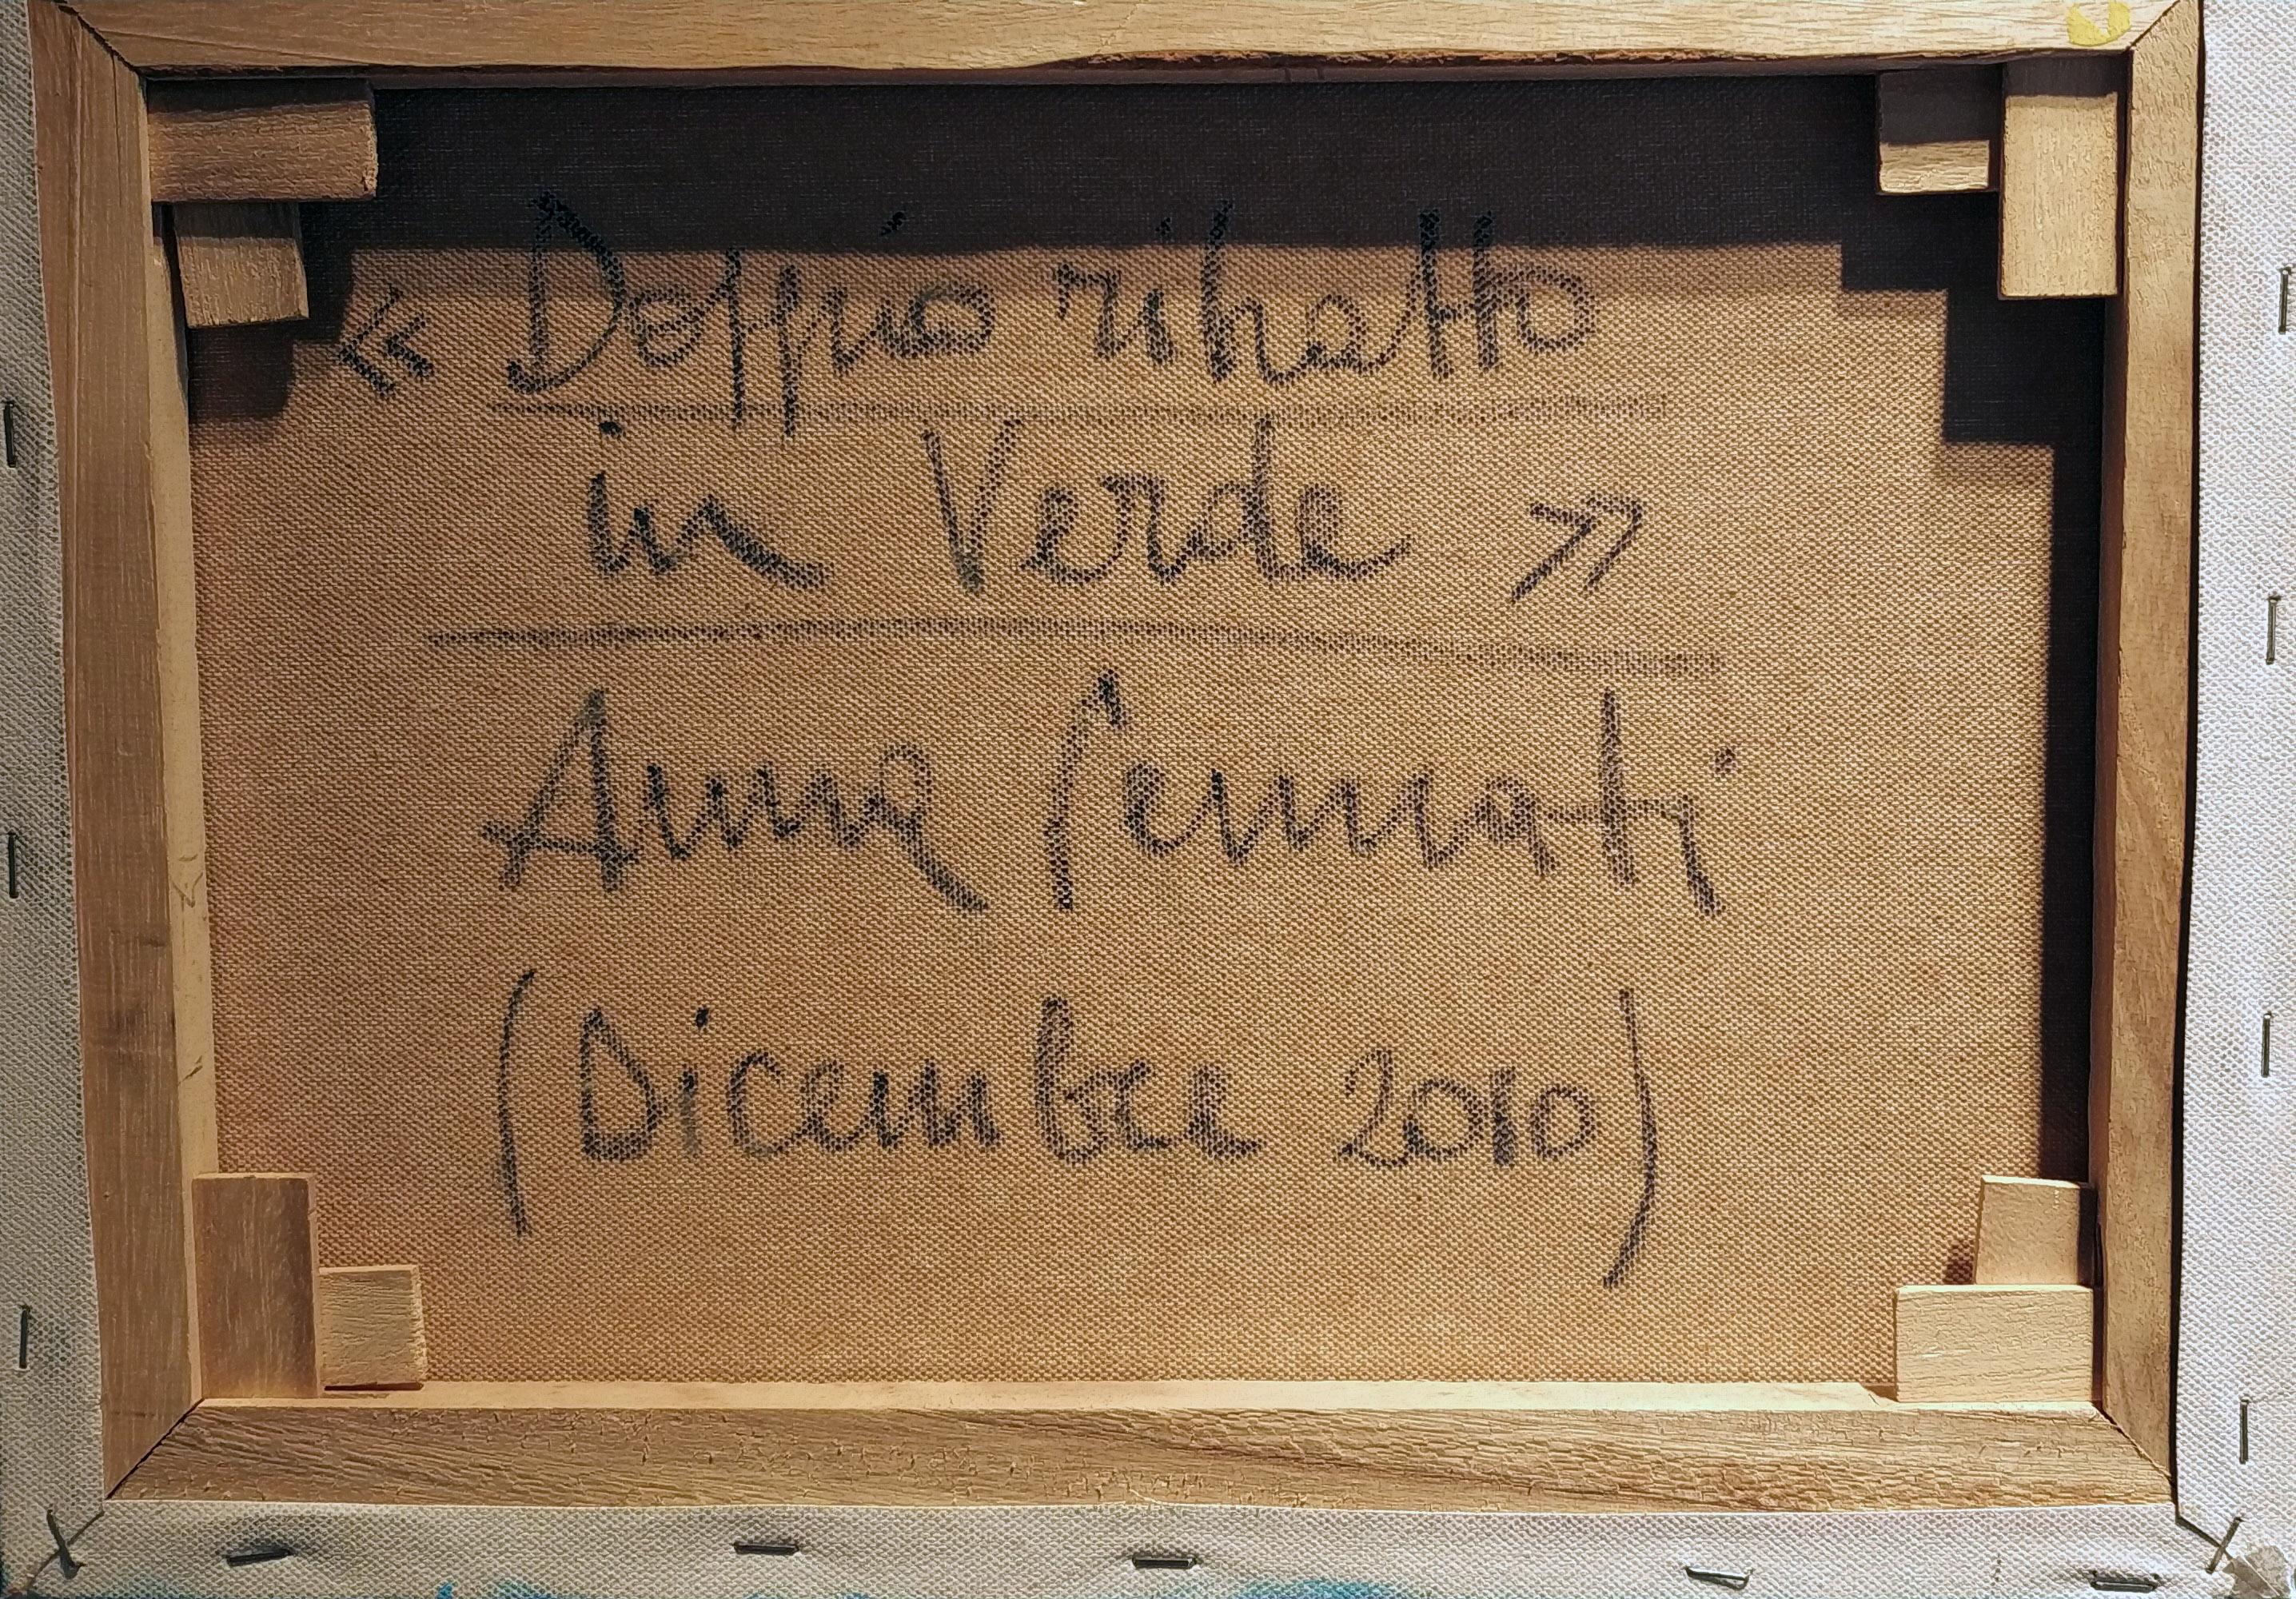 « Doppio ritratto
in Verde »
Anna Pennati
(Dicembre 2010)